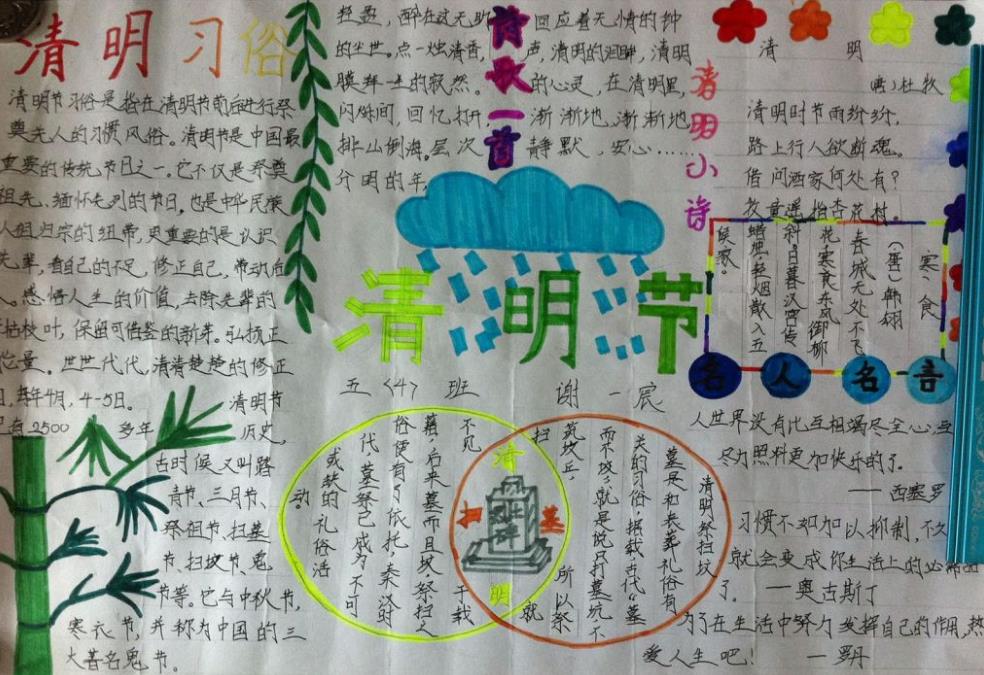 清明习俗
清明节习俗是指在清明节前后进行祭
奠先人的习惯风俗。清明节是中国最
重要的传统节日之一。它不仅是祭奠
祖先、缅怀先列的节日，也是中华民族
人祖归宗的纽带，更重要的是认识
先辈，看自己的不足，修正自己，带动后
人。感悟人生的价值，去除先辈的
枯枝叶，保留可借鉴的新芽。弘扬正
能量。世世代代，清清楚楚的修正
每年4月，4-5日。 清明节
已有2500 多年 历史，
古时候又叫踏
青节、三月节、
祭祖节、扫墓
节、扫坟节、鬼
节等。它与中秋节，
寒衣节，并称为中国的三
大著名鬼节。
诗歌一首
轻盈，醉在这无助
的尘世。点一烛清香，
膜拜一生的寂然。
闪烁间，回忆打开，
排山倒海。层次
分明的年，
回应着无情的钟
声，清明的泪眸，清明
的心灵，在清明里，
渐渐地，渐渐地
静默，安心……
清明小诗
清 明
（唐）杜牧
清明时节雨纷纷，
路上行人欲断魂。
借问酒家何处有？
牧童遥指杏花村。
寒食
（唐）韩翃
春城无处不飞
花，寒食东风御柳
斜。日暮汉宫传
蜡烛，轻烟散入五
侯家。
清明节
五〈4〉班 谢一宸
清明祭扫坟
墓是和丧葬礼俗有
关的习俗，据载，古代"墓
而不坟"，就是说只打墓坑，不
筑坟丘，所以祭
扫就
不见于载
籍，后来墓而且坟，祭扫之
俗便有了依托。秦汉时
代，墓祭已成为不可
或缺的礼俗活
动。
清
扫 墓
明
名人名言
人世界没有比互相竭尽全心，互
尽力照料更加快乐的了。
——西塞罗
习惯不如加以抑制，不久
就会变成你生活上的必需品
了。 —奥古斯丁
为了在生活中努力发挥自己的作用，热
爱人生吧！ —罗丹